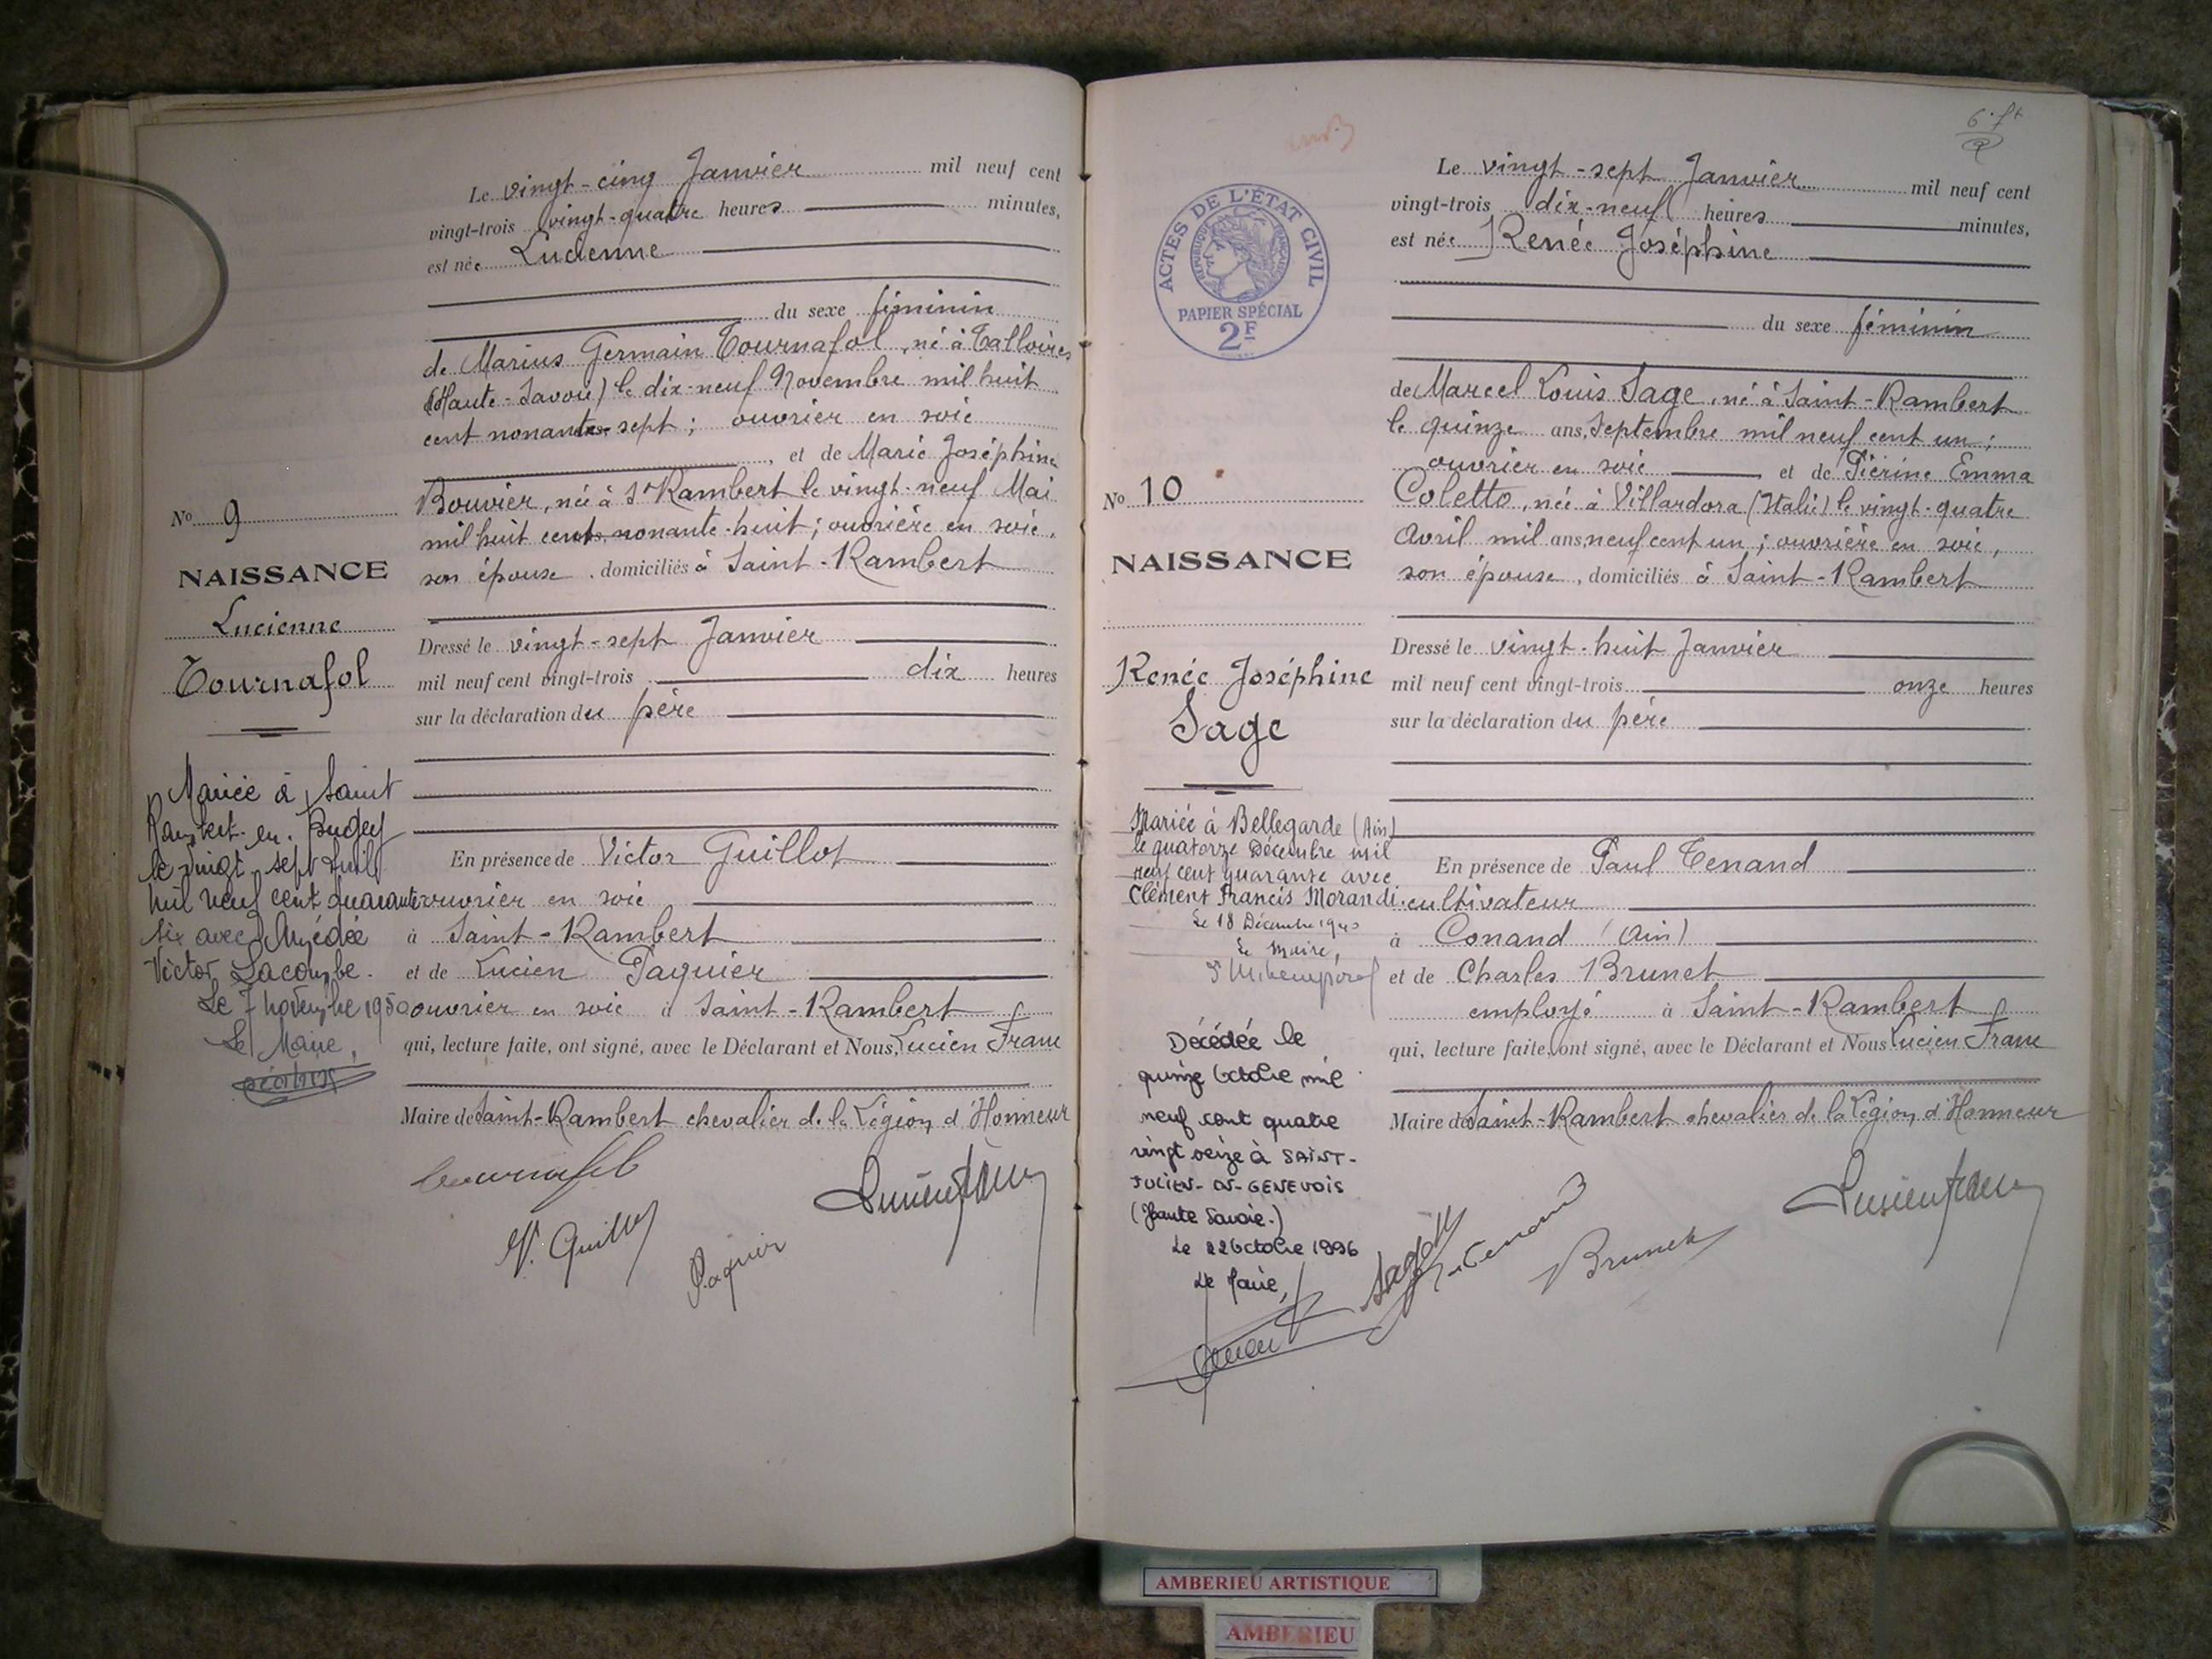 Le vingt-cinq Janvier mil neuf cent
vingt-trois vingt-quatre heures minutes,
est née Lucienne
du sexe féminin
de Marius Germain Tournafol, né à Talloires
(Haute-Savoie) le dix-neuf Novembre mil huit
cent nonante-sept ; ouvrier en soie
, et de Marie Joséphine
Bouvier, née à St Rambert le vingt-neuf Mai
mil huit cent nonante-huit ; ouvrière en soie,
son épouse, domiciliés à Saint-Rambert
Dressé le vingt-sept Janvier
mil neuf cent vingt-trois dix heures
sur la déclaration du père
En présence de Victor Guillot
ouvrier en soie
à Saint-Rambert
et de Lucien Paquier
ouvrier en soie à Saint-Rambert
qui, lecture faite, ont signé, avec le Déclarant et Nous, Lucien Franc
Maire de Saint-Rambert chevalier de la Légion d'Honneur
Tournafol
V. Guillot
Paquier
Lucien Franc
No 9
NAISSANCE
Lucienne
Tournafol
Mariée à Saint
Rambert-en-Bugey
le vingt-sept Juil
mil neuf cent quarante
six avec Amédée
Victor Lacombe.
Le 7 novembre 1950
Le Maire,
6 ft
ACTES DE L'ÉTAT CIVIL
RÉPUBLIQUE FRANÇAISE
PAPIER SPÉCIAL
2F
Le vingt-sept Janvier mil neuf cent
vingt-trois dix-neuf heures minutes,
est née Renée Joséphine
du sexe féminin
de Marcel Louis Sage, né à Saint-Rambert
le quinze ans, Septembre mil neuf cent un ;
ouvrier en soie et de Piérine Emma
Coletto, née à Villardora (Italie) le vingt-quatre
Avril mil ans, neuf cent un ; ouvrière en soie,
son épouse, domiciliés à Saint-Rambert
Dressé le vingt-huit Janvier
mil neuf cent vingt-trois onze heures
sur la déclaration du père
En présence de Paul Tenand
cultivateur
à Conand (Ain)
et de Charles Brunet
employé à Saint-Rambert
qui, lecture faite, ont signé, avec le Déclarant et Nous Lucien Franc
Maire de Saint-Rambert chevalier de la Légion d'Honneur
Sage
Tenand
Brunet
Lucien Franc
No 10
NAISSANCE
Renée Joséphine
Sage
Mariée à Bellegarde (Ain)
le quatorze Décembre mil
neuf cent quarante avec
Clément Francis Morandi.
Le 18 Décembre 1940
Le Maire,
Décédée le
quinze Octobre mil
neuf cent quatre
vingt seize à SAINT-
JULIEN-EN-GENEVOIS
(Haute Savoie.)
Le 22 Octobre 1996
Le Maire,
AMBERIEU ARTISTIQUE
AMBERIEU